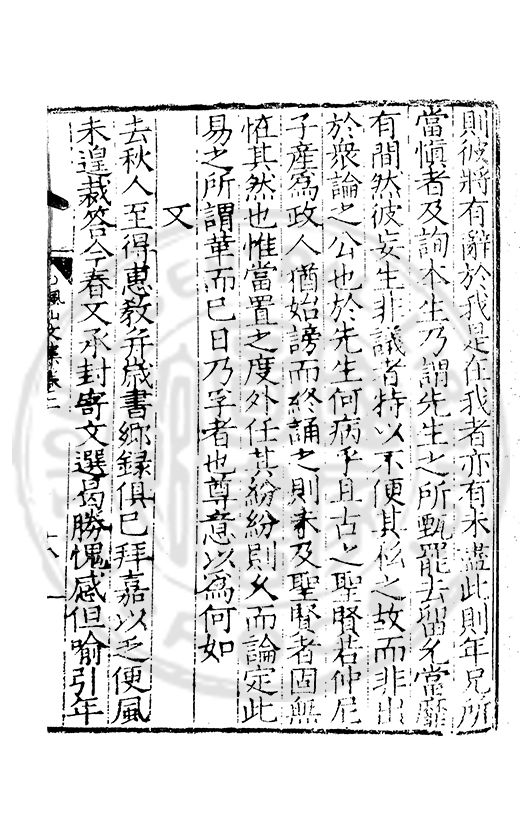 則彼將有辭於我是在我者亦有未盡此則年兄所
當愼者及詢本生乃謂先生之所甄罷去留允當靡
有間然彼妄生非議者特以不便其私之故而非出
於衆論之公也於先生何病乎且古之聖賢若仲尼
子產爲政人猶始謗而終誦之則未及聖賢者固無
恠其然也惟當置之度外任其紛紛則久而論定此
易之所謂革而已日乃孚者也尊意以爲何如
又
去秋人至得惠敎幷歲書鄉錄俱已拜嘉以乏便風
未遑裁答今春又承封寄文選曷勝愧感但喻引年
山文集卷二
十八